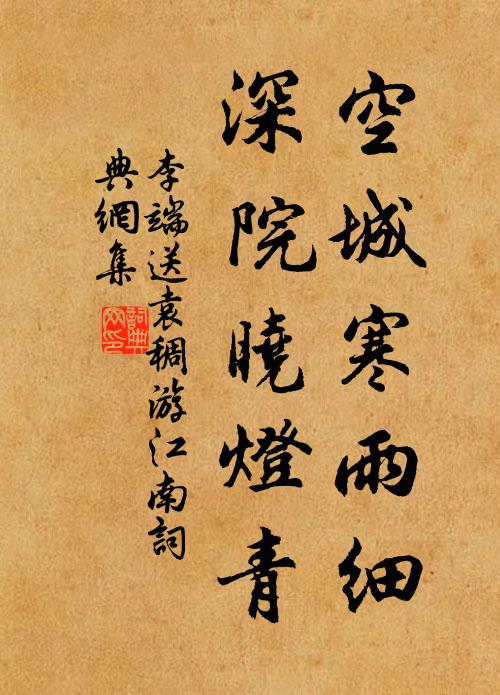 空城寒雨細
深院曉燈青
李端送袁稠游江南詞
典網集
詞典
网印